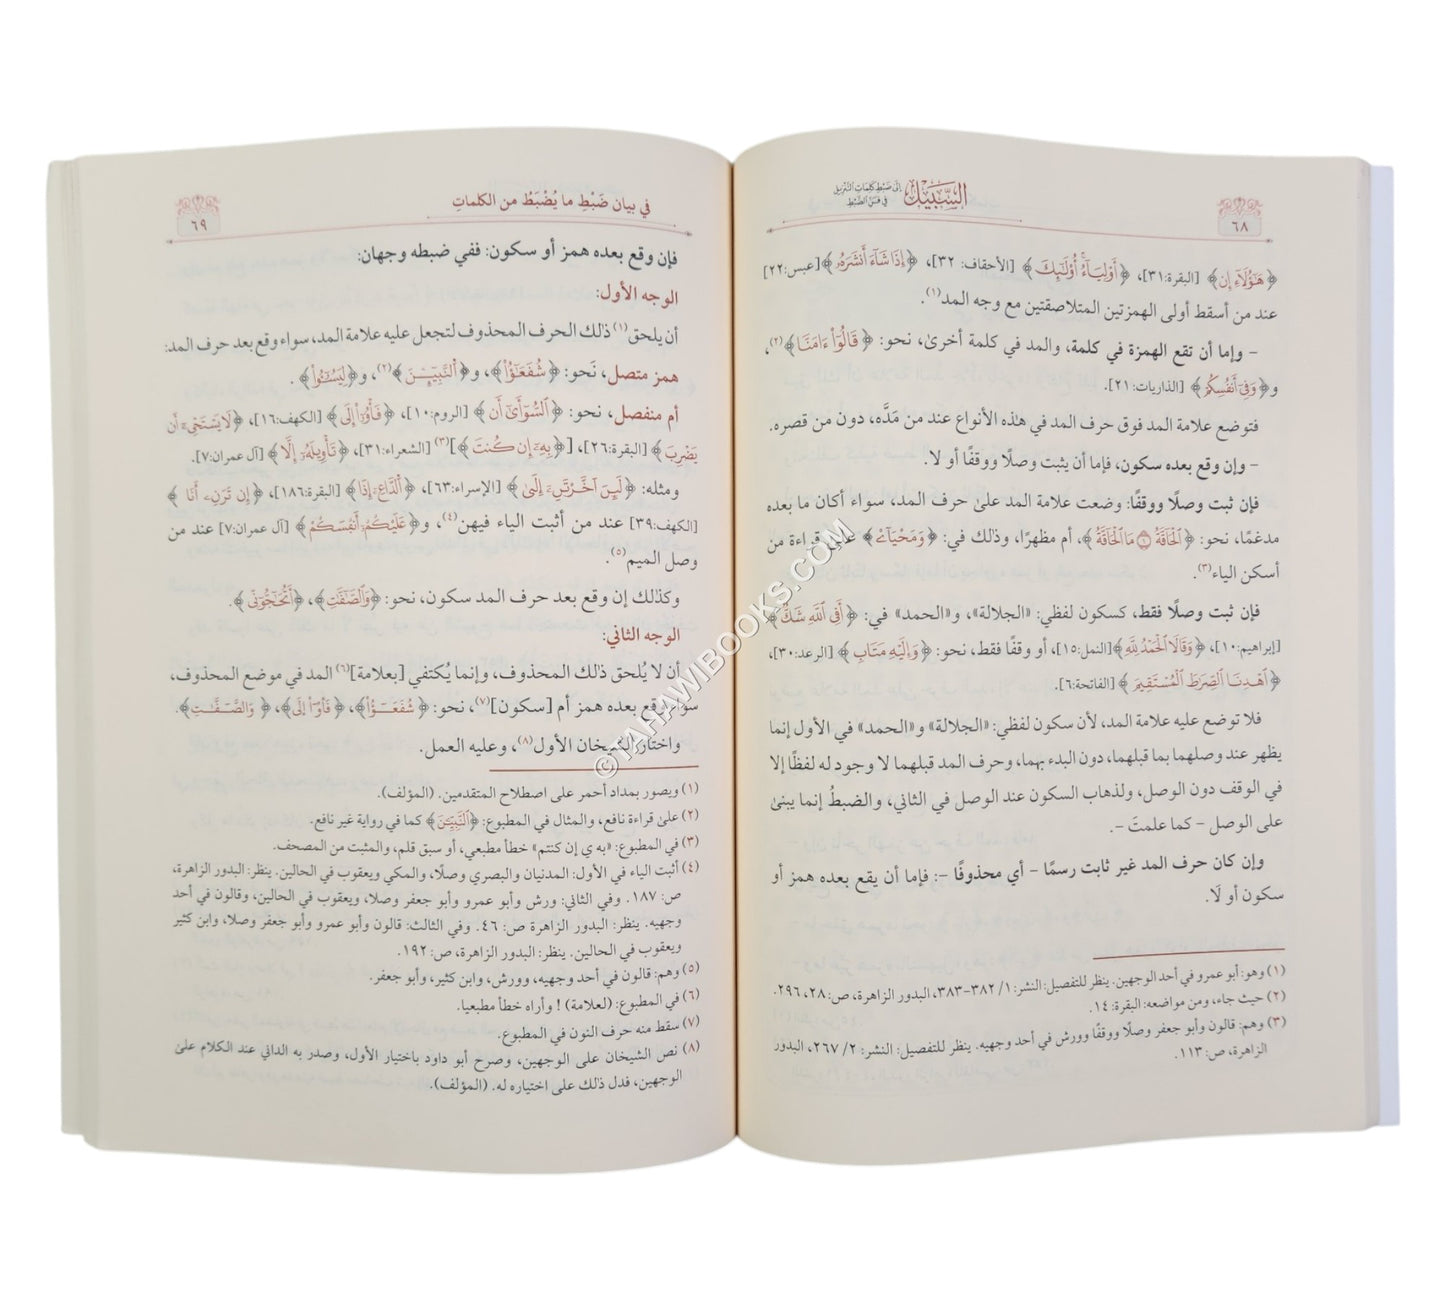 السبيل إلى ضبط كلمات التنزيل
في فن الضبط
٦٨
﴿هَٰٓؤُلَآءِ إِن﴾ [البقرة:٣١]، ﴿أَوْلِيَآءُۚ أُوْلَٰٓئِكَ﴾ [الأحقاف: ٣٢]، ﴿إِذَا شَآءَ أَنشَرَهُۥ﴾ [عبس:٢٢]
عند من أسقط أولى الهمزتين المتلاصقتين مع وجه المد(١).
- وإما أن تقع الهمزة في كلمة، والمد في كلمة أخرىٰ، نحو: ﴿قَالُوٓاْ ءَامَنَّا﴾(٢)،
و﴿وَفِيٓ أَنفُسِكُمۡ﴾ [الذاريات:٢١].
فتوضع علامة المد فوق حرف المد في هذه الأنواع عند من مَدَّه، دون من قصره.
- وإن وقع بعده سكون، فإما أن يثبت وصلًا ووقفًا أو لا.
فإن ثبت وصلًا ووقفًا: وضعت علامة المد علىٰ حرف المد، سواء أكان ما بعده
مدغمًا، نحو: ﴿ٱلۡحَآقَّةُ ١ مَا ٱلۡحَآقَّةُ﴾، أم مظهرًا، وذلك في: ﴿وَمَحۡيَآيۡ﴾ علىٰ قراءة من
أسكن الياء(٣).
فإن ثبت وصلًا فقط، كسكون لفظي: «الجلالة»، و«الحمد» في: ﴿أَفِي ٱللَّهِ شَكّٞ﴾
[إبراهيم:١٠]، ﴿وَقَالَا ٱلۡحَمۡدُ لِلَّهِ﴾ [النمل:١٥]، أو وقفًا فقط، نحو: ﴿وَإِلَيۡهِ مَتَابِ﴾ [الرعد:٣٠]،
﴿ٱهۡدِنَا ٱلصِّرَٰطَ ٱلۡمُسۡتَقِيمَ﴾ [الفاتحة:٦].
فلا توضع عليه علامة المد، لأن سكون لفظي: «الجلالة» و«الحمد» في الأول إنما
يظهر عند وصلهما بما قبلهما، دون البدء بهما، وحرف المد قبلهما لا وجود له لفظًا إلا
في الوقف دون الوصل، ولذهاب السكون عند الوصل في الثاني، والضبطُ إنما يبنىٰ
على الوصل - كما علمتَ -.
وإن كان حرف المد غير ثابت رسمًا - أي محذوفًا -: فإما أن يقع بعده همز أو
سكون أو لَا.
(١) وهو: أبو عمرو في أحد الوجهين. ينظر للتفصيل: النشر: ١/ ٣٨٢-٣٨٣، البدور الزاهرة، ص: ٢٨، ٢٩٦.
(٢) حيث جاء، ومن مواضعه: البقرة: ١٤.
(٣) وهم: قالون وأبو جعفر وصلًا ووقفًا وورش في أحد وجهيه. ينظر للتفصيل: النشر: ٢/ ٢٦٧، البدور
الزاهرة، ص: ١١٣.
في بيان ضَبْطِ ما يُضْبَطُ من الكلماتِ
٦٩
فإن وقع بعده همز أو سكون: ففي ضبطه وجهان:
الوجه الأول:
أن يلحق(١) ذلك الحرف المحذوف لتجعل عليه علامة المد، سواء وقع بعد حرف المد:
همز متصل، نَحو: ﴿شُفَعَٰٓؤُاْ﴾، و﴿ٱلنَّبِيِّـۧنَ﴾(٢)، و﴿لِيَسُـۥٓـُٔواْ﴾.
أم منفصل، نحو: ﴿ٱلسُّوٓأَىٰٓ أَن﴾ [الروم:١٠]، ﴿فَأۡوُۥٓاْ إِلَى﴾ [الكهف:١٦]، ﴿لَا يَسۡتَحۡيِۦٓ أَن
يَضۡرِبَ﴾ [البقرة:٢٦]، [﴿بِهِۦٓ إِن كُنتَ﴾](٣) [الشعراء:٣١]، ﴿تَأۡوِيلَهُۥٓ إِلَّا﴾ [آل عمران:٧].
ومثله: ﴿لَئِنۡ أَخَّرۡتَنِۦٓ إِلَىٰ﴾ [الإسراء:٦٣]، ﴿ٱلدَّاعِۦٓ إِذَا﴾ [البقرة:١٨٦]، ﴿إِن تَرَنِۦٓ أَنَا﴾
[الكهف:٣٩] عند من أثبت الياء فيهن(٤)، و﴿عَلَيۡكُمُۥٓ أَنفُسَكُمۡ﴾ [آل عمران:٧] عند من
وصل الميم(٥).
وكذلك إن وقع بعد حرف المد سكون، نحو: ﴿وَٱلصَّٰٓفَّٰتِ﴾، ﴿أَتُحَٰٓجُّوٓنِّي﴾.
الوجه الثاني:
أن لا يُلحق ذلك المحذوف، وإنما يُكتفي [بعلامة](٦) المد في موضع المحذوف،
سواء وقع بعده همز أم [سكون](٧)، نحو: ﴿شُفَعَـٓـؤُاْ﴾، ﴿فَأۡوُۥٓاْ إِلَى﴾، ﴿وَٱلصَّـٓـفَّٰتِ﴾.
واختار الشيخان الأول(٨)، وعليه العمل.
(١) ويصور بمداد أحمر على اصطلاح المتقدمين. (المؤلف).
(٢) علىٰ قراءة نافع، والمثال في المطبوع: ﴿ٱلنَّبِيِّـۧنَ﴾ كما في رواية غير نافع.
(٣) في المطبوع: «به ي إن كنتم» خطأ مطبعي، أو سبق قلم، والمثبت من المصحف.
(٤) أثبت الياء في الأول: المدنيان والبصري وصلًا، والمكي ويعقوب في الحالين. ينظر: البدور الزاهرة،
ص: ١٨٧. وفي الثاني: ورش وأبو عمرو وأبو جعفر وصلا، ويعقوب في الحالين، وقالون في أحد
وجهيه. ينظر: البدور الزاهرة ص: ٤٦. وفي الثالث: قالون وأبو عمرو وأبو جعفر وصلا، وابن كثير
ويعقوب في الحالين. ينظر: البدور الزاهرة، ص: ١٩٢.
(٥) وهم: قالون في أحد وجهيه، وورش، وابن كثير، وأبو جعفر.
(٦) في المطبوع: (لعلامة) ! وأراه خطأ مطبعيا.
(٧) سقط منه حرف النون في المطبوع.
(٨) نص الشيخان على الوجهين، وصرح أبو داود باختيار الأول، وصدر به الداني عند الكلام علىٰ
الوجهين، فدل ذلك على اختياره له. (المؤلف).
©TAHAWIBOOKS.COM